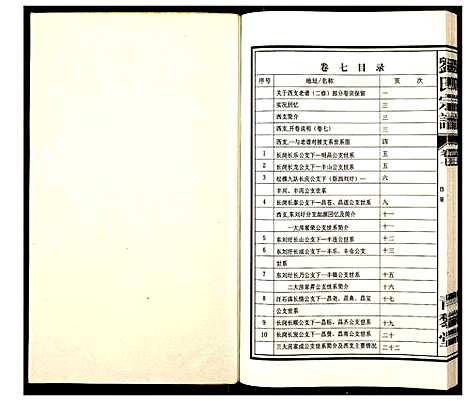 卷七目录
序号 地址/名称 页次
关于西支老谱（二修）部分卷页保留 一
实况回忆 三
西支简介 三
西支．开卷说明（卷七） 三
西支．一与老谱对接支系世系图 四
1 长岗长乐公支下一明昌公支世系 五
2 长岗长龙公支下一丰山公支世系 五
3 松棵九队长庆公支下（张洒刘圩）一 六
丰兴、丰芮公支世系
4 长岗长泰公支下一昌苍、昌道公支世系 九
西支．东刘圩分支起源回忆及简介 十一
一大房家荣公支世系简介 十一
5 东刘圩长山公支下一丰连公世系 十二
6 东刘圩长成公支下一丰乐、丰仓公支 十三
世系
7 东刘圩长乃公支下一丰德公支世系 十五
二大房家昇公支世系简介 十六
8 江石溪长镜公支下一昌尧、昌典、昌宝 十七
公支世系
9 长岗长顺公支下一昌松、昌齐公支世系 十九
10 长岗长安公支下一昌贤、昌南公支世系 二十
三大房家成公支世系简介及西支主要情况 二十二
刘氏宗谱
卷七
目录